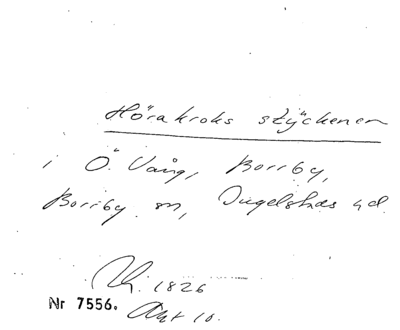 Hörakroks styckenen
i Ö. Vång, Borrby,
Borrby sn, Ingelstads hd.
1826
Nr 7556. Akt 10.